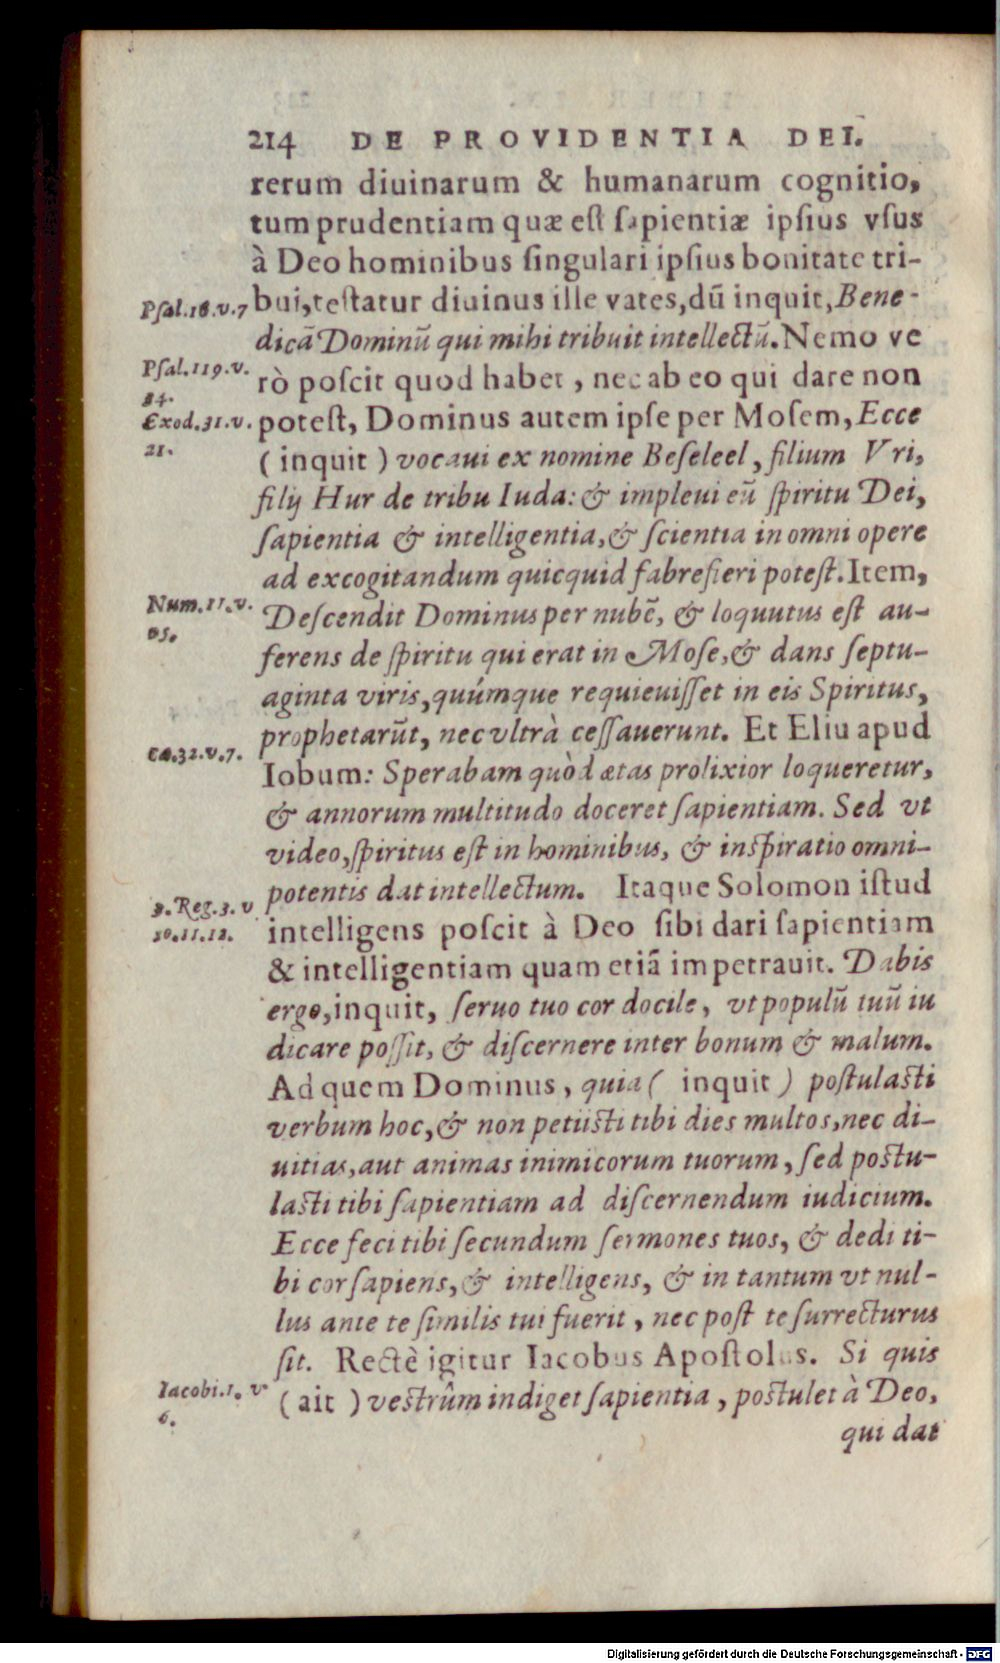 214 DE PROVIDENTIA DEI.
rerum diuinarum & humanarum cognitio,
tum prudentiam quæ est sapientiæ ipsius vsus
à Deo hominibus singulari ipsius bonitate tri-
Psal.16.v.7
bui, testatur diuinus ille vates, dū inquit, Bene-
dicā Dominū qui mihi tribuit intellectū. Nemo ve
Psal.119.v.
34.
rò poscit quod habet, nec ab eo qui dare non
Exod.31.v.
21.
potest, Dominus autem ipse per Mosem, Ecce
(inquit) vocaui ex nomine Beseleel, filium Vri,
filij Hur de tribu Iuda: & impleui eū spiritu Dei,
sapientia & intelligentia, & scientia in omni opere
ad excogitandum quicquid fabrefieri potest. Item,
Num.11.v.
Descendit Dominus per nubē, & loquutus est au-
ferens de spiritu qui erat in Mose, & dans septu-
aginta viris, quúmque requieuisset in eis Spiritus,
prophetarūt, nec vltrà cessauerunt. Et Eliu apud
Ca.32.v.7.
Iobum: Sperabam quòd ætas prolixior loqueretur,
& annorum multitudo doceret sapientiam. Sed vt
video, spiritus est in hominibus, & inspiratio omni-
potentis dat intellectum. Itaque Solomon istud
3.Reg.3.v
10.11.12.
intelligens poscit à Deo sibi dari sapientiam
& intelligentiam quam etiā impetrauit. Dabis
ergo, inquit, seruo tuo cor docile, vt populū tuū iu
dicare possit, & discernere inter bonum & malum.
Ad quem Dominus, quia (inquit) postulasti
verbum hoc, & non petiisti tibi dies multos, nec di-
uitias, aut animas inimicorum tuorum, sed postu-
lasti tibi sapientiam ad discernendum iudicium.
Ecce feci tibi secundum sermones tuos, & dedi ti-
bi cor sapiens, & intelligens, & in tantum vt nul-
lus ante te similis tui fuerit, nec post te surrecturus
sit. Rectè igitur Iacobus Apostolus. Si quis
Iacobi.1. v
6.
(ait) vestrûm indiget sapientia, postulet à Deo,
qui dat
Digitalisierung gefördert durch die Deutsche Forschungsgemeinschaft - DFG